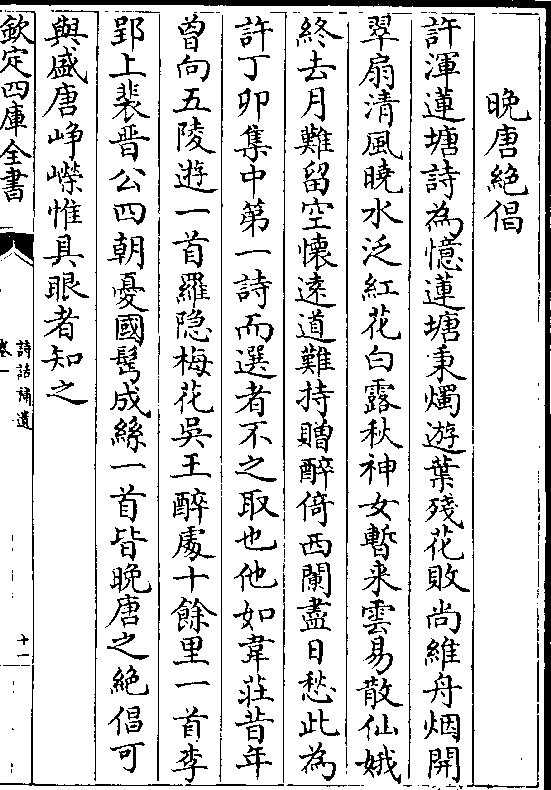 晚唐絕倡
許渾蓮塘詩為憶蓮塘秉燭遊葉殘花敗尚維舟烟開
翠扇清風曉水泛紅花白露秋神女暫来雲易散仙娥
終去月難留空懷遠道難持贈醉倚西闌盡日愁此為
許丁卯集中第一詩而選者不之取也他如韋莊昔年
曽向五陵遊一首羅隐梅花吳王醉處十餘里一首李
郢上裴晋公四朝憂國鬂成絲一首皆晚唐之絶倡可
與盛唐崢嶸惟具眼者知之
欽定四庫全書
詩話補遺
卷一
十一